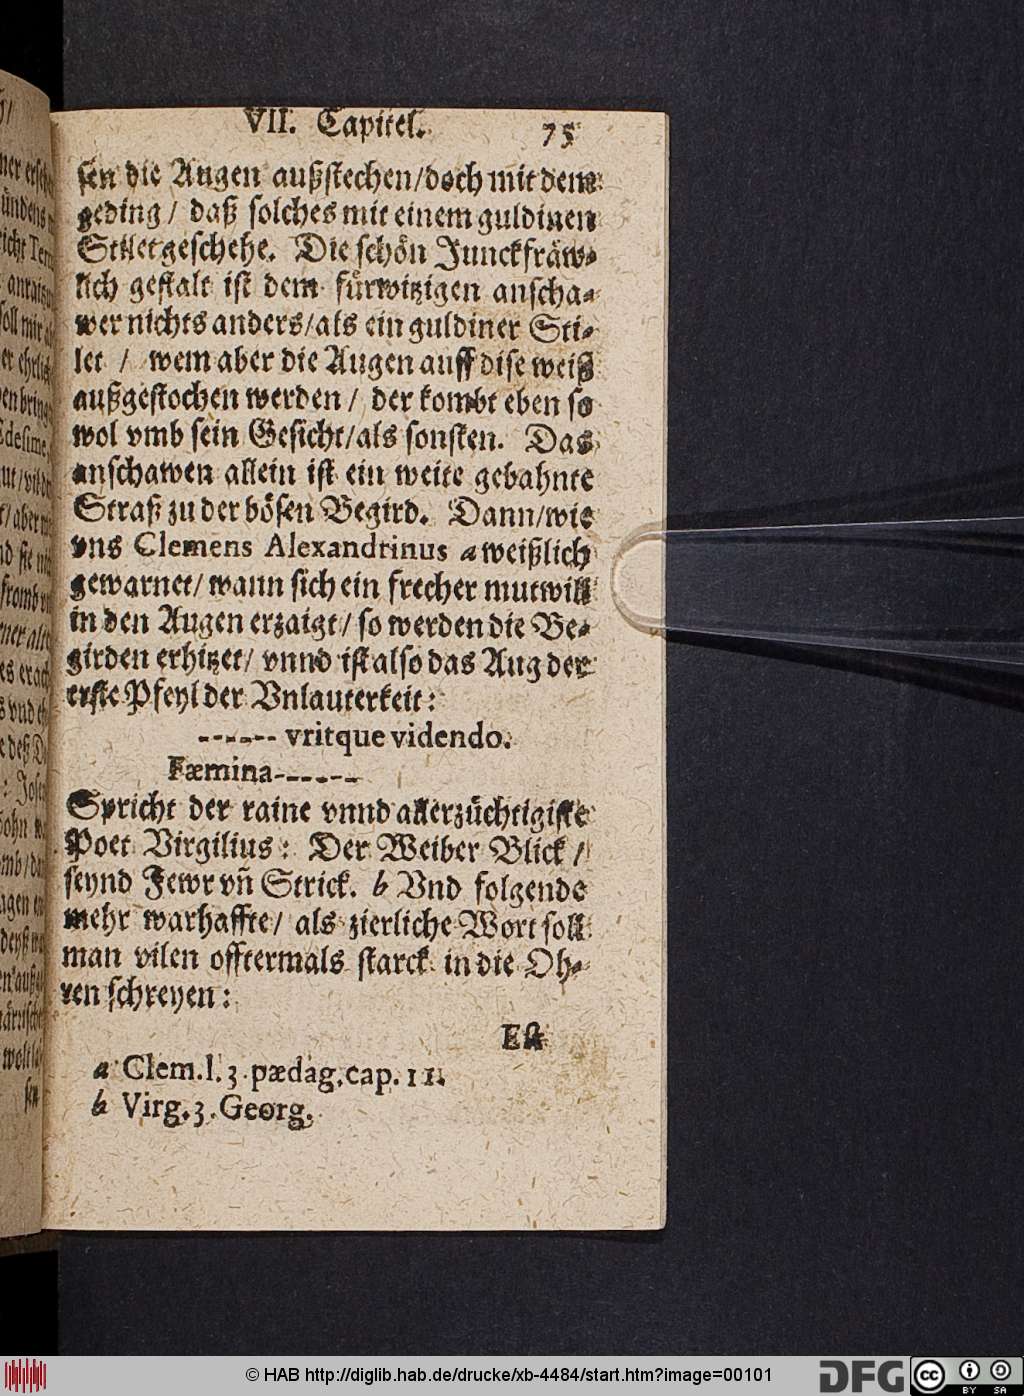 VII. Capitel. 75
sen die Augen außstechen/doch mit dem
geding / daß solches mit einem guldinen
Stilet geschehe. Die schön Junckfräw-
lich gestalt ist dem fürwitzigen anscha-
wer nichts anders/als ein guldiner Sti-
let / wem aber die Augen auff dise weiß
außgestochen werden / der kombt eben so
wol vmb sein Gesicht/als sonsten. Das
anschawen allein ist ein weite gebahnte
Straß zu der bösen Begird. Dann/wie
vns Clemens Alexandrinus a weißlich
gewarnet/ wann sich ein frecher mutwill
in den Augen erzaigt/ so werden die Be-
girden erhitzet/ vnnd ist also das Aug der
erste Pfeyl der Vnlauterkeit:
------ vritque videndo.
Fæmina------
Spricht der raine vnnd allerzüchtigiste
Poet Virgilius: Der Weiber Blick /
seynd Fewr vñ Strick. b Vnd folgende
mehr warhaffte/ als zierliche Wort soll
man vilen offtermals starck in die Oh-
ren schreyen:
Est
a Clem.l.3.pædag.cap.11.
b Virg.3.Georg.
sen
© HAB http://diglib.hab.de/drucke/xb-4484/start.htm?image=00101
DFG
cc
BY SA